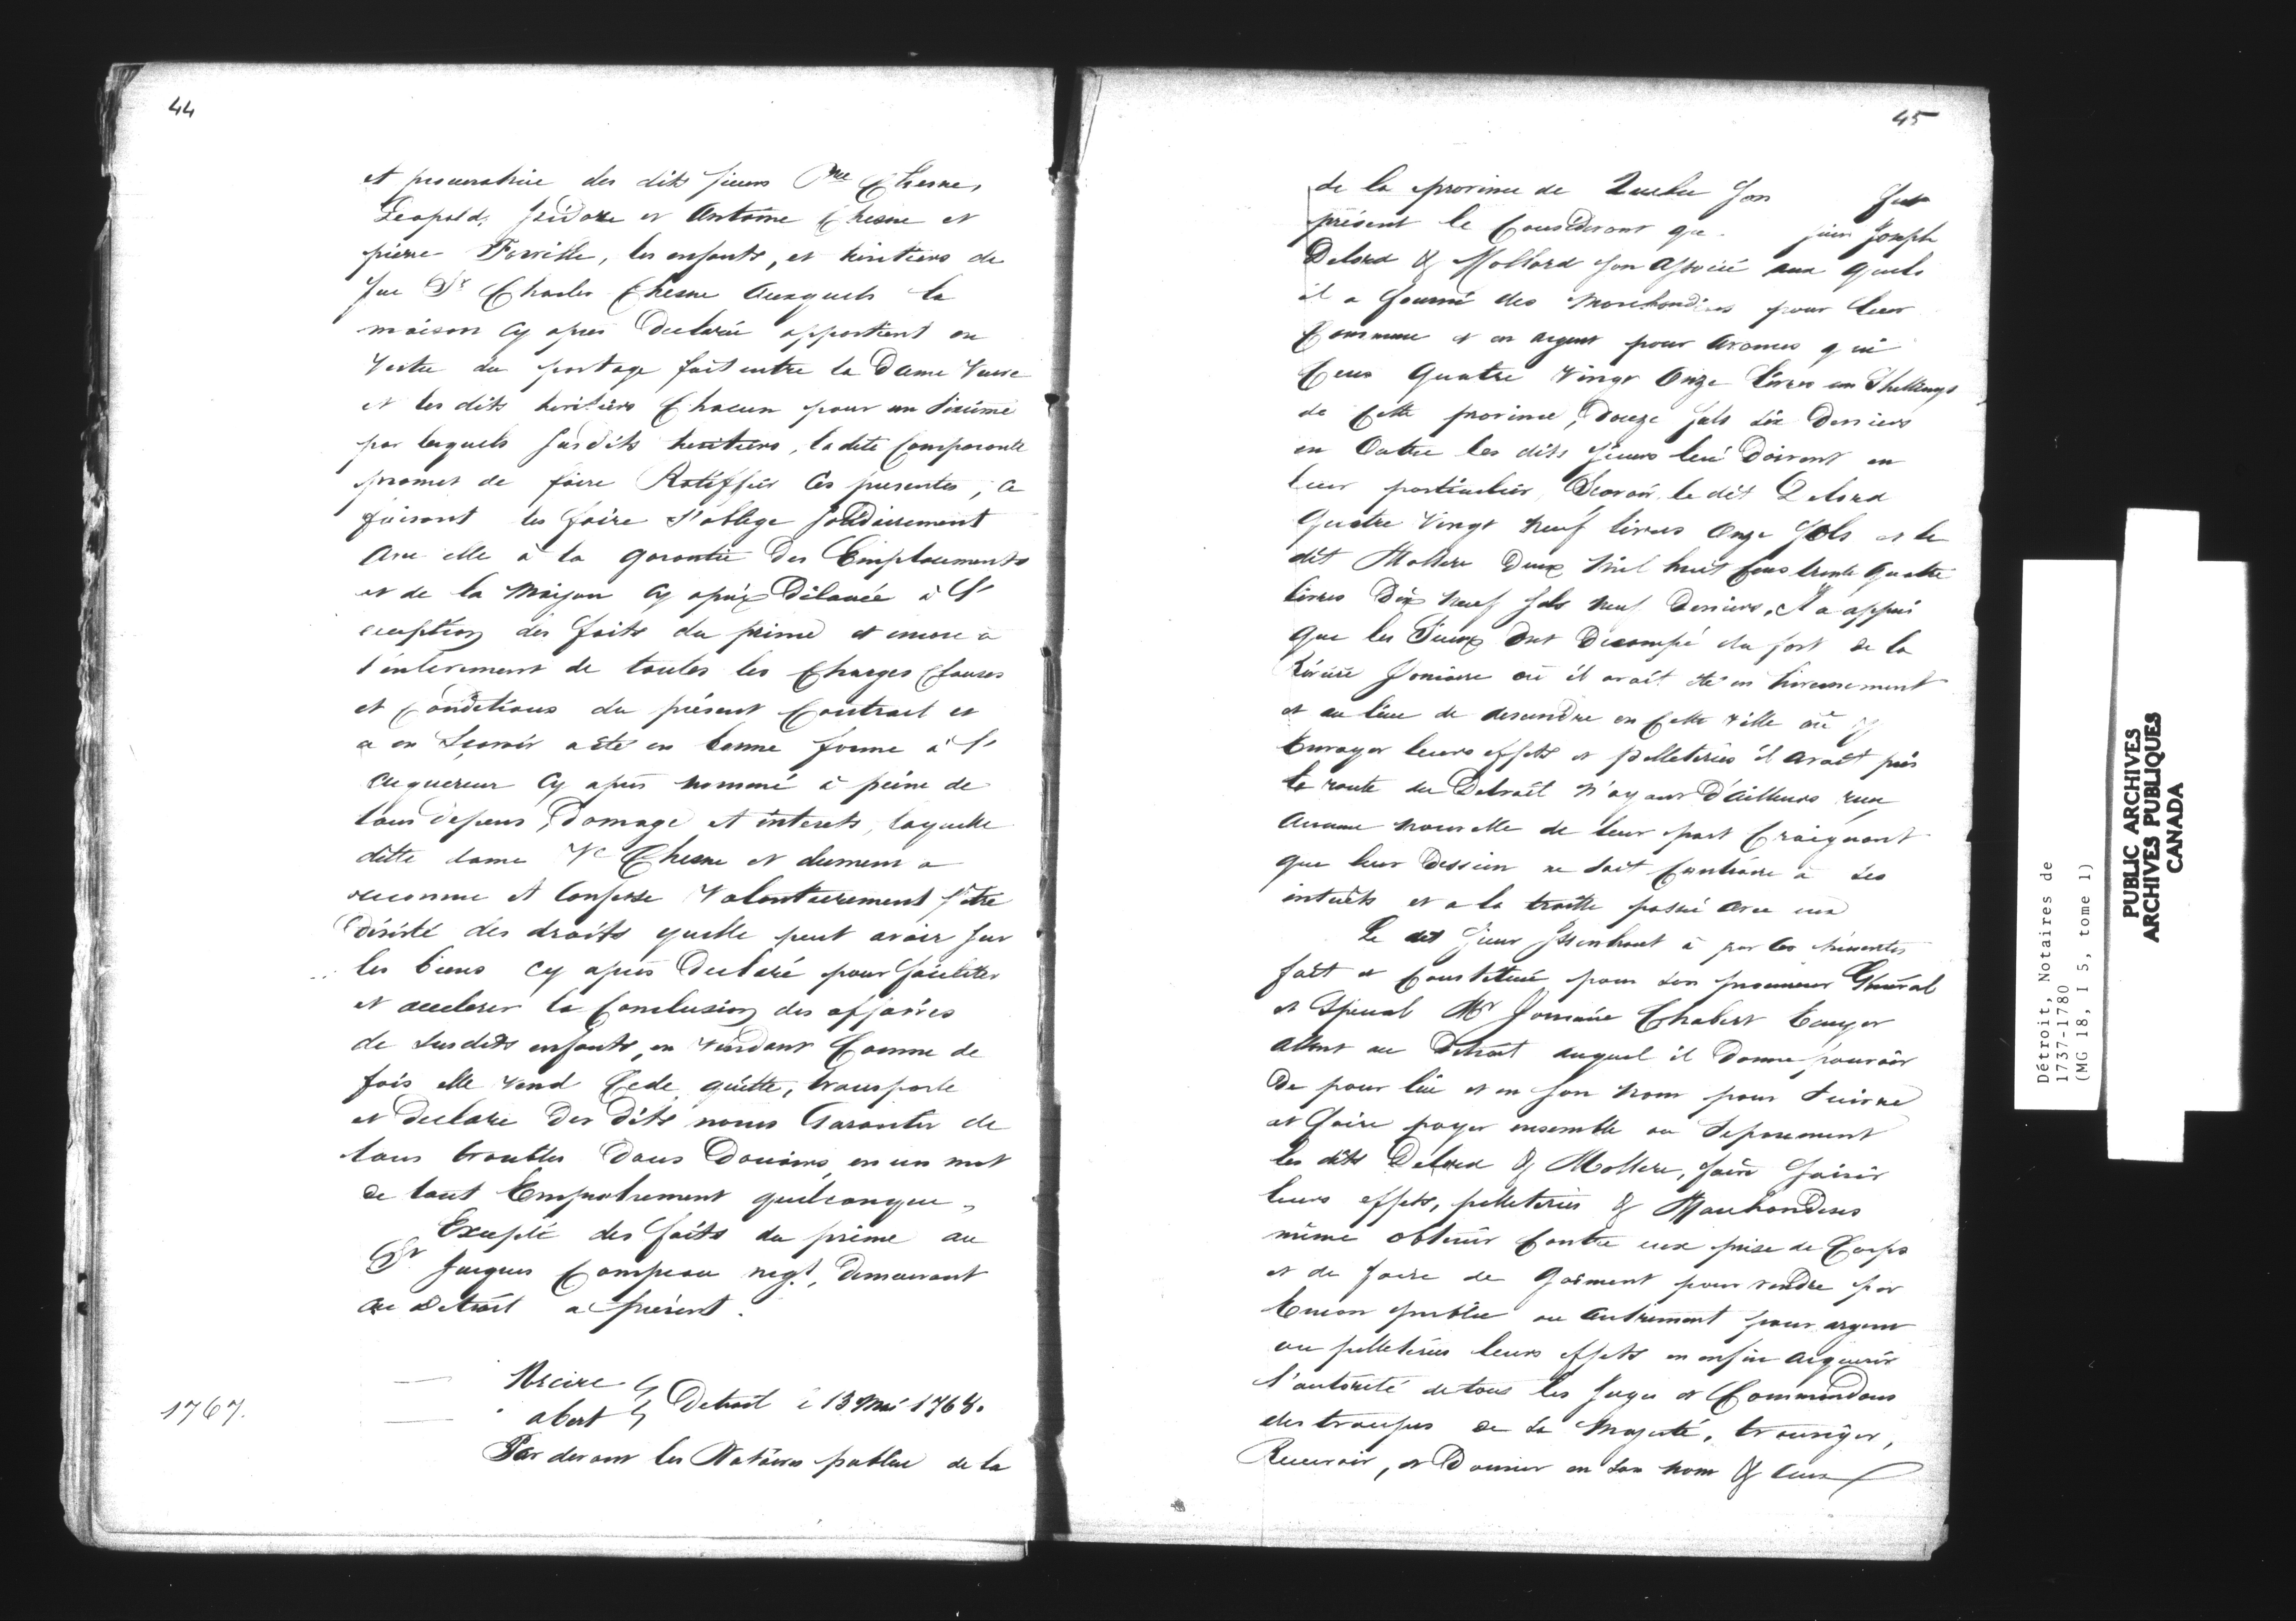 44
et procuratrice des dits sieurs Pre Chesne,
Leopold, Isidore et Antoine Chesne et
pierre, les enfants, et heritiers de
feu Sr Charles Chesne auxquels la
maison cy apres declarée appartient en
vertu du partage fait entre la Dame Veuve
et les dits heritiers Chacun pour un sixième
par lesquels susdits heritiers, ladite Comparante
promet de faire Ratiffier Ces presentes, ce
faisant les faire s'oblige solidairement
avec elle à la garantie des Emplacements
et de la Maison cy après délarée à l'
exception des faits du prince et encore à
l'entierement de toutes les Charges Clauses
et Conditions du présent Contract et
a en acte en bonne forme à l'
acquereur cy apres nommé à peine de
tous depens, Domage et interets, laquelle
ditte dame Ve Chesne et a
reconnu et Confesse Volontairement s'etre
désisté des droits quelle peut avoir sur
les biens cy apres Declaré pour faciliter
et accelerer la Conclusion des affaires
de susdits enfants, en vendant Comme de
fois elle vend Cede, quitte, transporte
et Declare des dits noms Garantir de
tous troubles Dons Douaires, en un mot
de tout Empechement quelconque,
Excepté des faits du prince au
Sr Jacques Campeau negt, demeurant
au Detroit a présent.
1767.
abert Detroit le 13 Mai 1768.
Par devant les Notaires publics de la
45
de la province de Quebec son fut
présent le Considerant que sieur Joseph
Delord & Mollard son associé aux quels
il a fourni des Marchandises pour leur
Commune et en argent pour avances
Cens Quatre Vingt Onze livres en Shellings
de Cette province, Douze sols six Deniers
en Outre les dits sieurs lui Doivent en
leur particulier, Scavoir, le dit Delord
Quatre Vingt neuf livres Onze Sols et le
dit Mollere Deux Mil huit Cens trente quatre
livres Dix neuf sols neuf Deniers, et a appris
que les Sieurs ont Decampé du fort de la
Riviere où il avoit été en hivernement
et au lieu de descendre en Cette ville ou
Envoyer leurs effets et pelleteries il avoit pris
la route du Detroit n'ayant D'ailleurs reçu
aucune nouvelle de leur part Craignant
que leur Dessein ne soit Contraire à ses
intérêts et a la traitte passé avec eux
Le dit Sieur à par les présentes
fait et Constitué pour son procureur Général
et Special Mr Joncaire Chabert
allant au Detroit auquel il Donne pouvoir
De pour lui et en son nom pour suivre
et faire payer ensemble ou Séparement
les dits Delord & Mollere, faire saisir
leurs effets, pelleteries & Marchandises
même obtenir Contre eux prise de Corps
et de faire de pour vendre par
Encan public ou autrement pour argent
ou pelleteries leurs effets en enfin acquerir
l'autorité de tous les Juges et Commandans
des troupes de Sa Majesté, transiger,
Recevoir, et Donner en son nom &
Détroit, Notaires de
1737-1780
(MG 18, I 5, tome 1)
PUBLIC ARCHIVES
ARCHIVES PUBLIQUES
CANADA